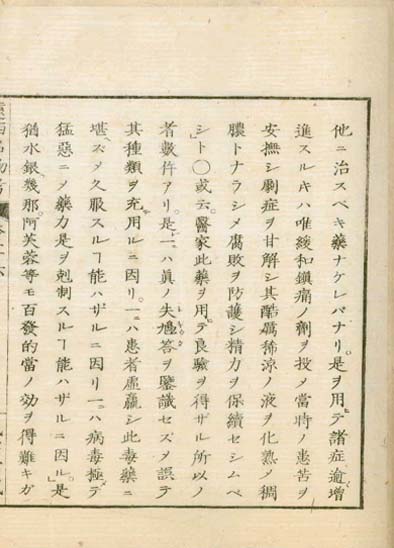 他ニ治スベキ藥ナケレバナリ。是ヲ用テ諸症逾増
進スルキハ唯緩和鎭痛ノ劑ヲ投メ當時ノ患苦ヲ
安撫シ劇症ヲ甘解シ其酷厲稀涼ノ液ヲ化熟メ稠
膿トナラシメ腐敗ヲ防護シ精力ヲ保續セシムベ
シ」ト○或云。醫家此藥ヲ用テ良驗ヲ得ザル所以ノ
者數件アリ。是一ハ眞ノ失鳩答ヲ鑒識セズメ誤テ
其種類ヲ充用ルニ因リ。一ハ患者虚羸シ此毒藥ニ
堪ズメ久服スルヿ能ハザルニ因リ一ハ病毒極テ
猛惡ニメ藥力是ヲ剋制スルヿ能ハザルニ因ル」是
猶水銀、幾那、阿芙蓉等モ百發的當ノ効ヲ得難キガ